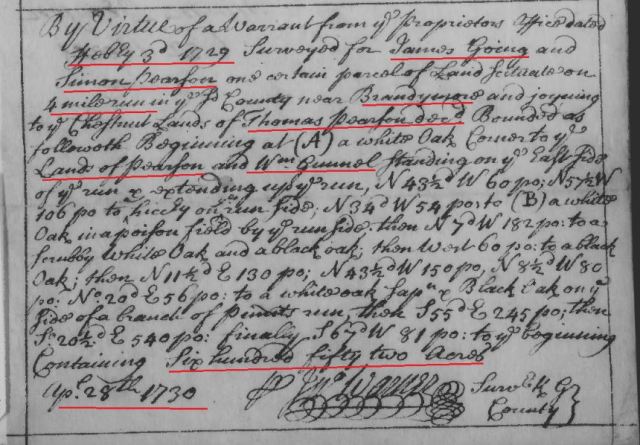 By Virtue of a Warrant from yᵉ Proprietors Office dated
Feb.ry 3d 1729 Surveyed for James Going and
Simon Pearson one certain parcel of Land scituate on
4 mile run in yᵉ sd County near Brandymore and joyning
to yᵉ Chestnut Lands of Thomas Pearson decd Bounded as
followeth Beginning at (A) a white Oak Corner to yᵉ
Lands of Pearson and Wm Gunnel Standing on yᵉ East side
of yᵉ run & extending up yᵉ run, N 43½d W 60 po; N 57½ W
106 po to hiccky on run side; N 34d W 54 po: to (B) a white
Oak in a poison field by yᵉ run side: then N 7d W 182 po: to a
scrubby White Oak and a black oak; then West 60 po: to a black
Oak; then N 11½d E 130 po; N 43½d W 150 po, N 8½d W 80
po: No 20d E 56 po: to a white oak Sapn & Black Oak on yᵉ
side of a branch of Pimits run, then S 55d E 245 po; then
So 20½d E 540 po: finally S 67d W 81 po: to yᵉ beginning
Containing Six hundred fifty two Acres
Apl. 28th 1730
Survr K G
County